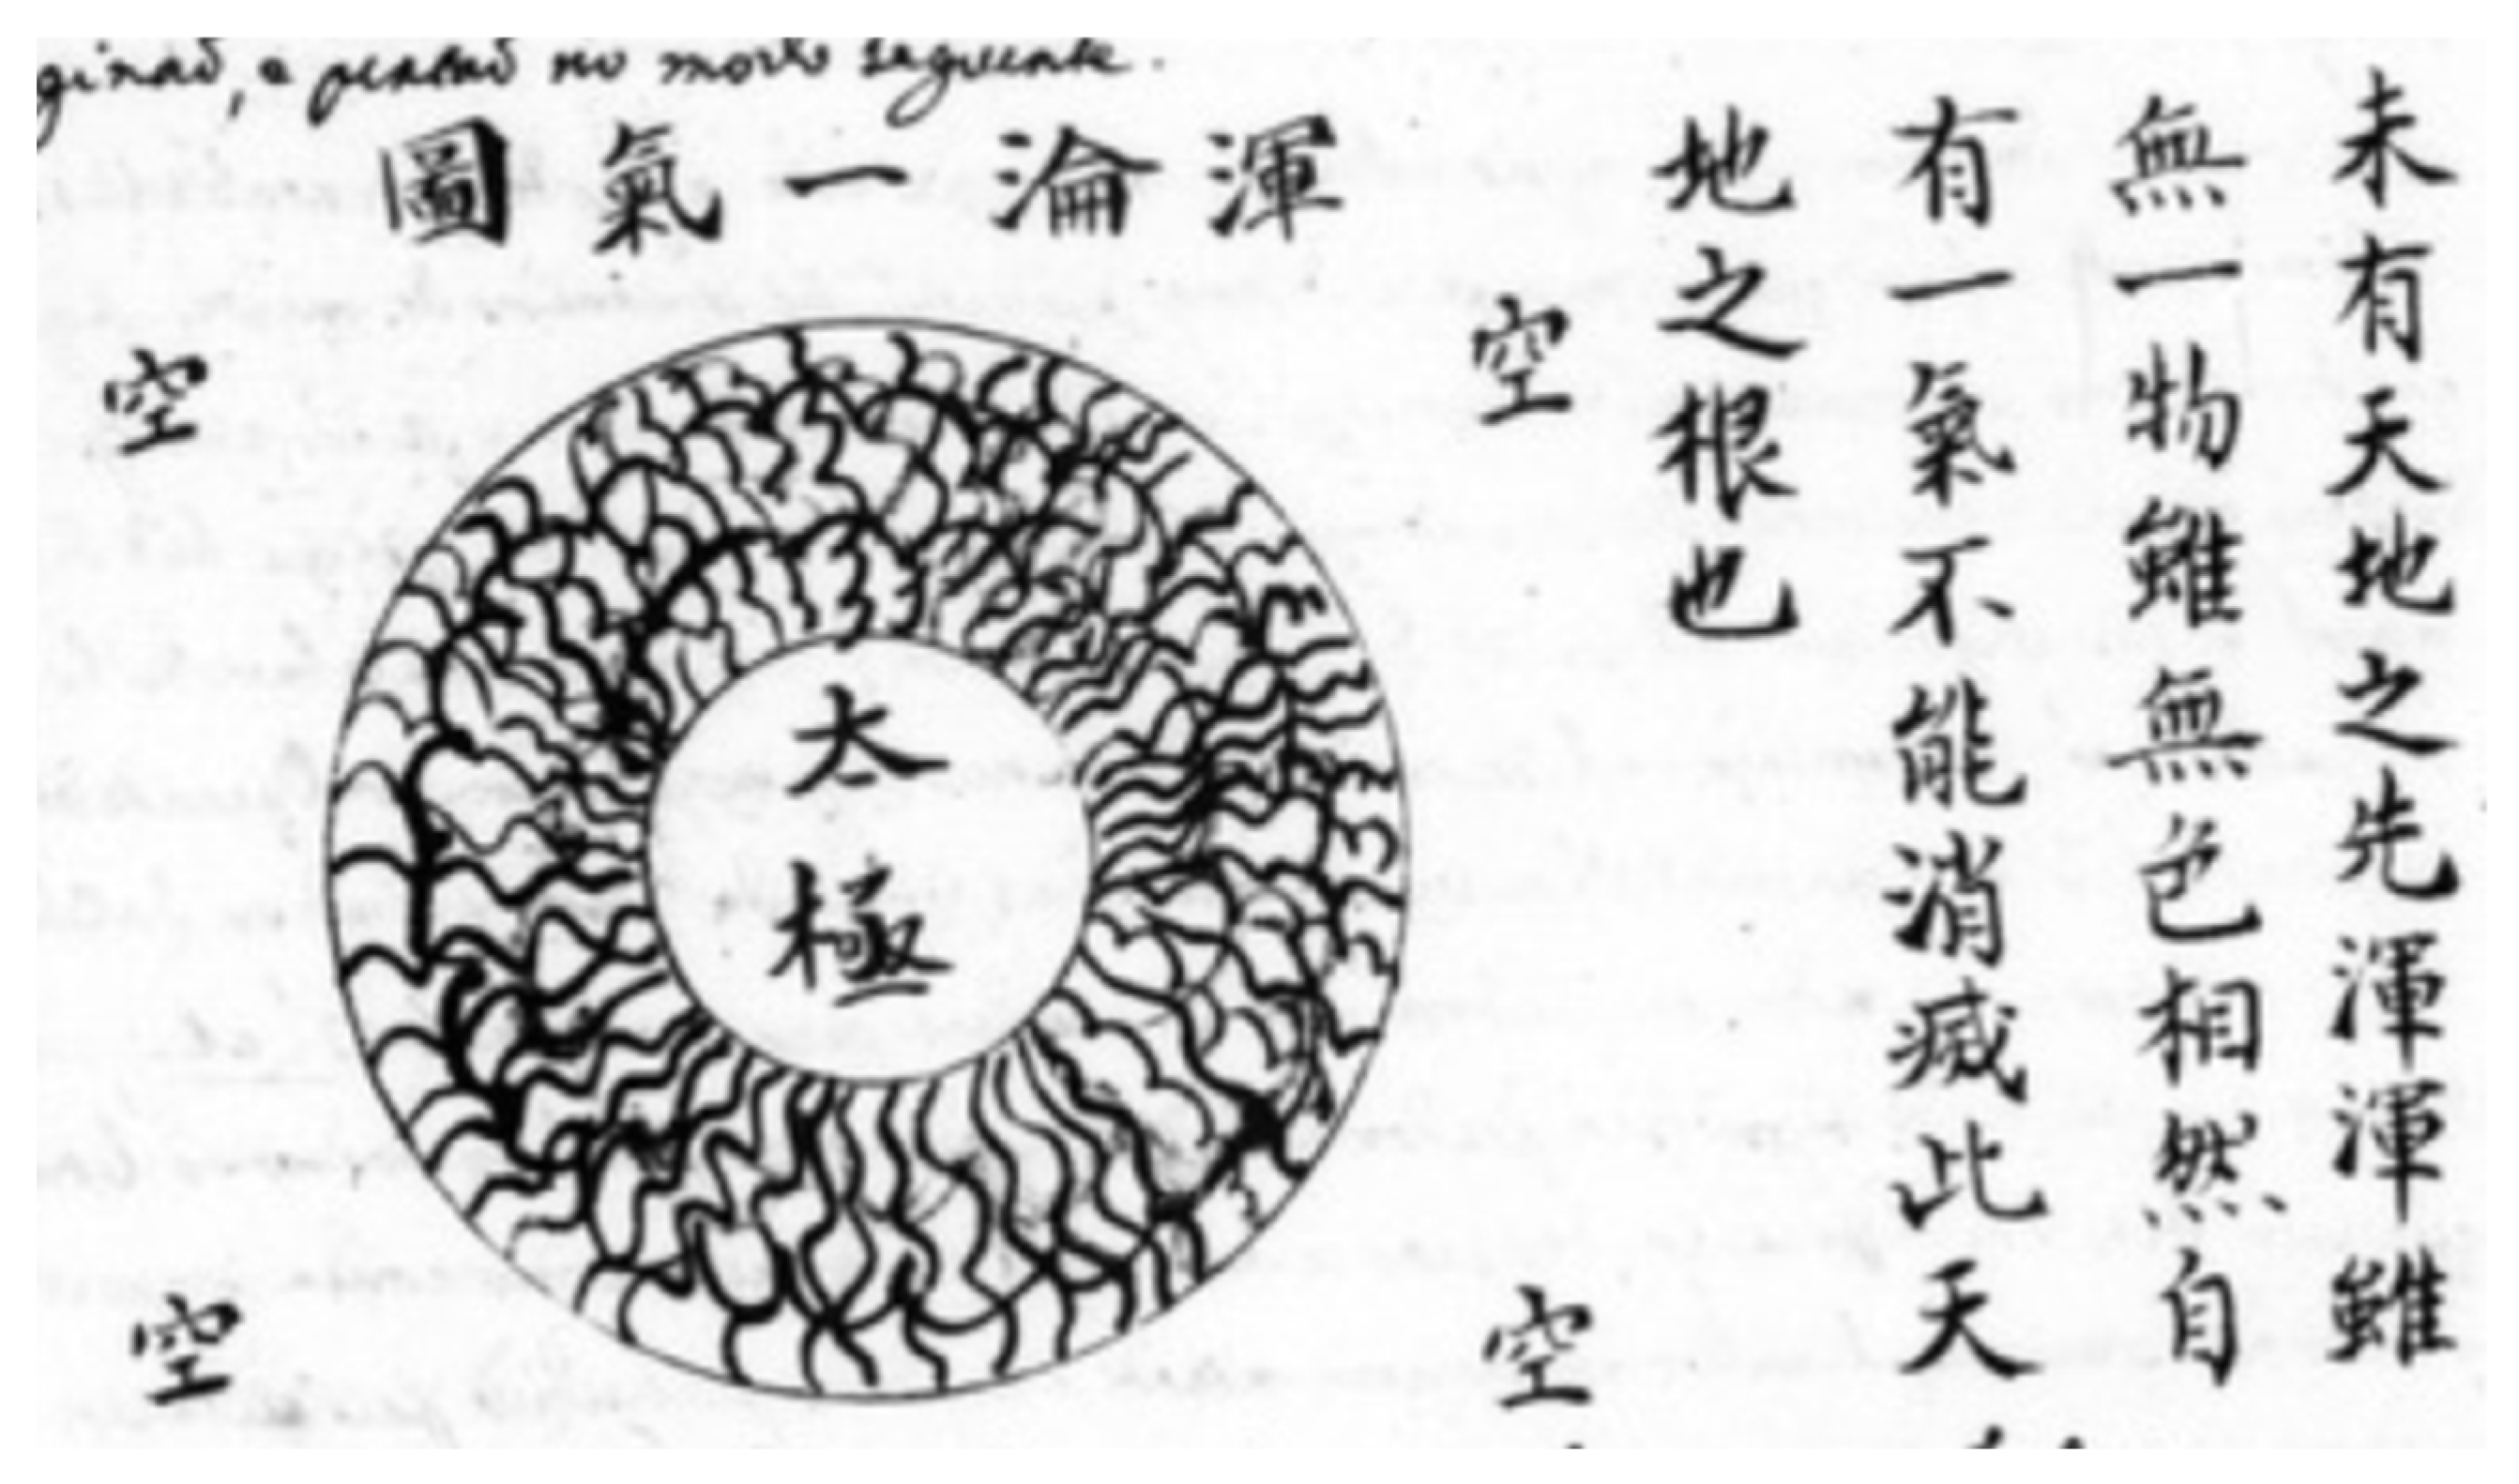 ginaõ, e pensaõ no modo seguente.
渾淪一氣圖
未有天地之先渾渾雖
無一物雖無色相然自
有一氣不能消滅此天
地之根也
空
空
太極
空
空